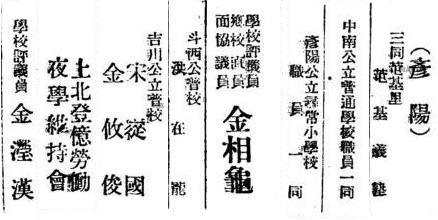 （彥陽）
三同范基里
范基義塾
中南公立普通學校職員一同
彥陽公立尋常小學校
職員一同
學校評議員
鄕校直員
面協議員
金相龜
斗西公普校
在龍
吉川公立普校
宋從國
金攸俊
上北登億勞動
夜學維持會
學校評議員
金瀅漢